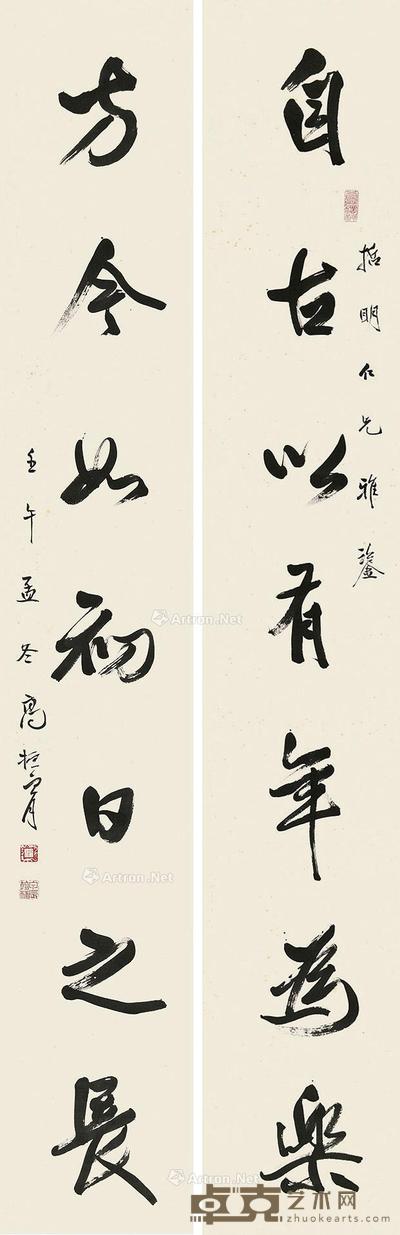 自古以有年為樂
哲明仁兄雅鑒
方今如初日之長
壬午孟冬高振霄
Artron.Net
Artron.Net
Artron.Net
卓克艺术网
zhuokearts.com